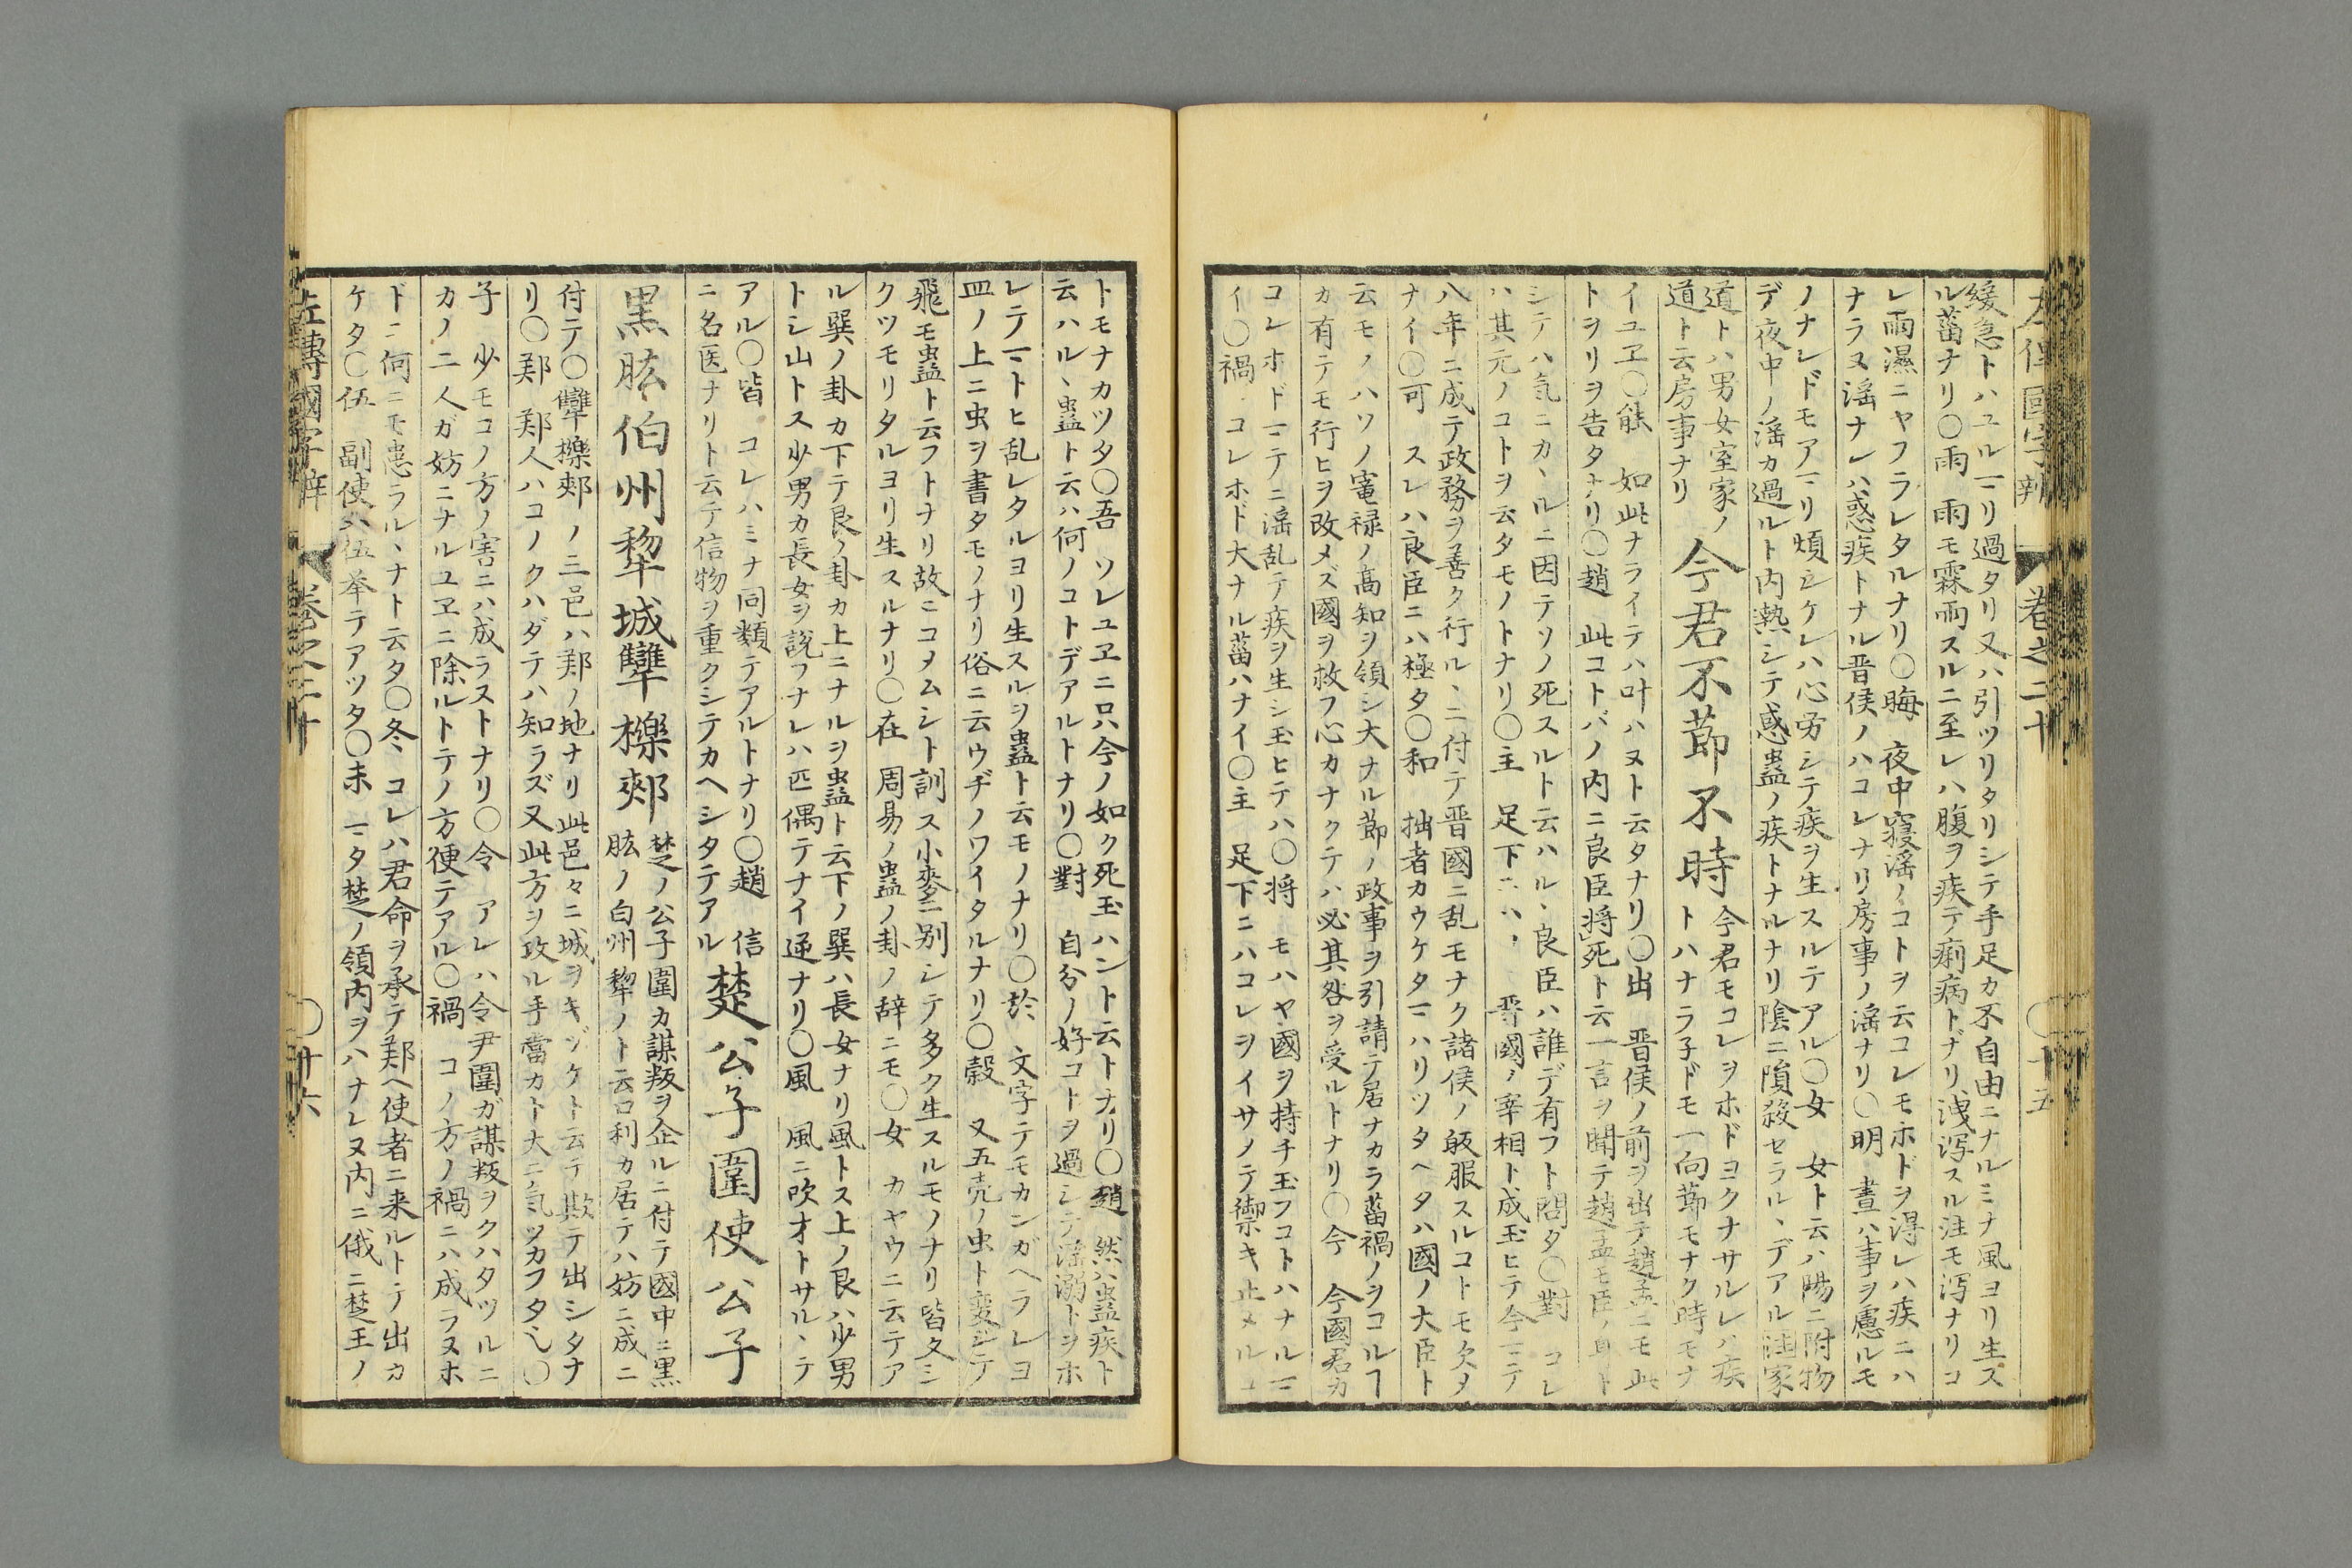 左傳國字辨 卷之二十 〇十五
緩急トハユルヿリ過タリ又ハ引ツリタリシテ手足カ不自由ニナルミナ風ヨリ生ズ
ル菑ナリ〇雨 雨モ霖雨スルニ至レハ腹ヲ疾テ痢病トナリ洩瀉スル注モ瀉ナリコ
レ雨濕ニヤフラレタルナリ〇晦 夜中寝淫ノコトヲ云コレモホドヲ得レハ疾ニハ
ナラヌ淫ナレハ惑疾トナル晋侯ノハコレナリ房事ノ淫ナリ〇明 晝ハ事ヲ慮ルモ
ノナレドモアヿリ煩シケレハ心労シテ疾ヲ生スルテアル〇女 女ト云ハ陽ニ附物
デ夜中ノ淫カ過ルト内熱シテ惑蠱ノ疾トナルナリ陰ニ隕殺セラルヽデアル 室家
道トハ男女室家ノ
道ト云房事ナリ
今君不莭不時
今君モコレヲホドヨクナサルレバ疾
トハナラ子ドモ一向莭モナク時モナ
イユヱ〇能 如此ナライテハ叶ハヌト云タナリ〇出 晋侯ノ前ヲ出テ趙孟ニモ此
トヲリヲ告タナリ〇趙 此コトバノ内ニ良臣將死ト云一言ヲ聞テ趙孟モ臣ノ身ト
シテハ氣ニカヽルニ因テソノ死スルト云ハルヽ良臣ハ誰デ有フト問タ〇對 コレ
ハ其元ノコトヲ云タモノトナリ〇主 足下ニハヽ 晋國ノ宰相ト成玉ヒテ今ヿテ
八年ニ成テ政務ヲ善ク行ルヽニ付テ晋國ニ乱モナク諸侯ノ皈服スルコトモ欠メ
ナイ〇可 スレハ良臣ニハ極タ〇和 拙者カウケタヿハリツタヘタハ國ノ大臣ト
云モノハソノ寵禄ノ髙知ヲ領シ大ナル莭ノ政事ヲ引請テ居ナカラ菑禍ノヲコルヿ
カ有テモ行ヒヲ改メズ國ヲ救フ心カナクテハ必其咎ヲ受ルトナリ〇今 今國君カ
コレホドヿテニ淫乱テ疾ヲ生シ玉ヒテハ〇将 モハヤ國ヲ持チ玉フコトハナルヿ
イ〇禍 コレホド大ナル菑ハナイ〇主 足下ニハコレヲイサノテ禦キ止メルコ
トモナカツタ〇吾 ソレユヱニ只今ノ如ク死玉ハント云トナリ〇趙 然ハ蠱疾ト
云ハルヽ蠱ト云ハ何ノコトデアルトナリ〇對 自分ノ好コトヲ過シテ淫溺トヲホ
レテヿトヒ乱レタルヨリ生スルヲ蠱ト云モノナリ〇於 文字テモカンガヘラレヨ
皿ノ上ニ虫ヲ書タモノナリ俗ニ云ウヂノワイタルナリ〇穀 又五壳ノ虫ト変シテ
飛モ蠱ト云フトナリ故ニコメムシト訓ス小麥ニ別シテ多ク生スルモノナリ皆久シ
クツモリタルヨリ生スルナリ〇在 周易ノ蠱ノ卦ノ辞ニモ〇女 カヤウニ云テア
ル巽ノ卦カ下テ艮ノ卦カ上ニナルヲ蠱ト云下ノ巽ハ長女ナリ風トス上ノ艮ハ少男
トシ山トス少男カ長女ヲ説フナレハ匹偶テナイ逆ナリ〇風 風ニ吹オトサルヽテ
アル〇皆 コレハミナ同類テアルトナリ〇趙 信
ニ名医ナリト云テ信物ヲ重クシテカヘシタテアル
楚公子圍使公子
黒肱伯州犂城犫櫟郟
楚ノ公子圍カ謀叛ヲ企ルニ付テ國中ニ黒
肱ノ白州犂ノト云ロ利カ居テハ妨ニ成ニ
付テ〇犫櫟郟 ノ三邑ハ郑ノ地ナリ此邑々ニ城ヲキヅケト云テ欺テ出シタナ
リ〇郑 郑人ハコノクハダテハ知ラズ又此方ヲ攻ル手當カト大ニ氣ヅカフタ也〇
子 少モコノ方ノ害ニハ成ラストナリ〇令 アレハ令尹圍ガ謀叛ヲクハタツルニ
カノ二人ガ妨ニナルユヱニ除ルトテノ方便テアル〇禍 コノ方ノ禍ニハ成ラヌホ
ドニ何ニモ患ラルヽナト云タ〇冬 コレハ君命ヲ承テ郑ヘ使者ニ来ルトテ出カ
ケタ〇伍 副使ハ伍挙テアツタ〇未 ヿタ楚ノ領内ヲハナレヌ内ニ俄ニ楚王ノ
左傳國字辨 卷之二十 〇廿六